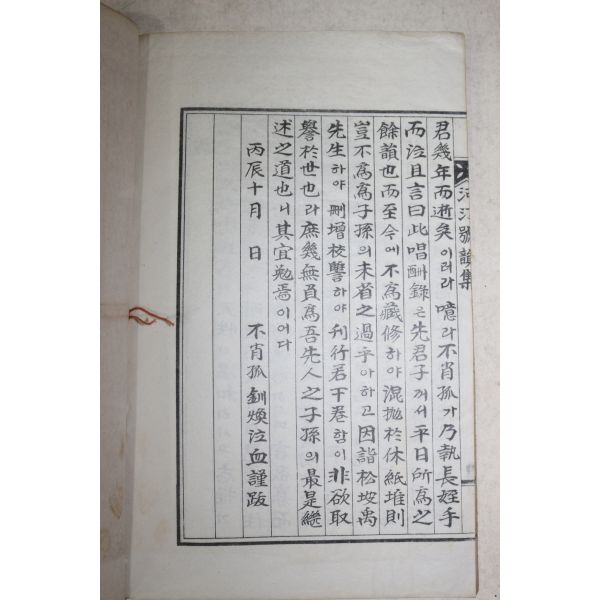 河汀號韻集
君幾年而逝矣이러라 噫라不肖孤가乃執長姪手
而泣且言曰此唱酬錄은先君子께서平日所爲之
餘韻也而至今에不爲藏修하야混抛於休紙堆則
豈不爲爲子孫의未省之過乎아하고因詣松坡禹
先生하야刪增校讐하야刊行若干卷함이非欲取
譽於世也라庶幾無負爲吾先人之子孫의最是繼
述之道也니其宜勉焉이어다
丙辰十月 日 不肖孤釧煥泣血謹跋